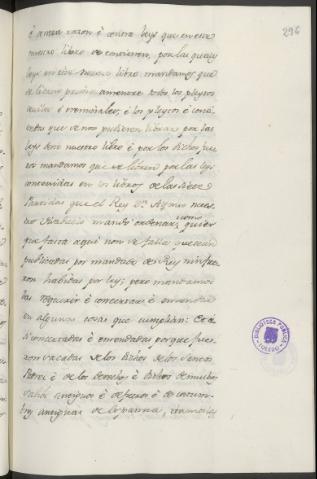 296
é a esta razon é contra leys que en este
nuestro libro se contienen, por las quales
leys en este nuestro libro mandamos que
se libren primeramente todos los pleytos
civiles é creminales; é los pleytos é contiendas
que se non pudieren librar por las
leys deste nuestro libro é por los dichos fueros
mandamos que se libren por las leys
contenidas en los libros de las siete
Partidas que el Rey Dn. Alfonso nuestro
Visabuelo mandó ordenar, como quier
que fasta aqui non se falla que sean
publicadas por mandado de Rey nin fueron
habidas por ley; pero mandamos
las requerir é concertar é enmendar
en algunas cosas que cumplian: Et asi
concertadas é enmendadas porque fueron
sacadas de los dichos de los Santos
Padres é de los derechos é dichos de muchos
Sabios antiguos é de fueros é de costumbres
antiguas de Espanna, damosles
BIBLIOTECA PUBLICA
TOLEDO